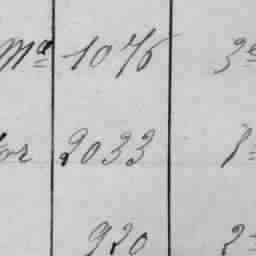 Mª 1076 3ª
or 2033 1ª
920 2ª